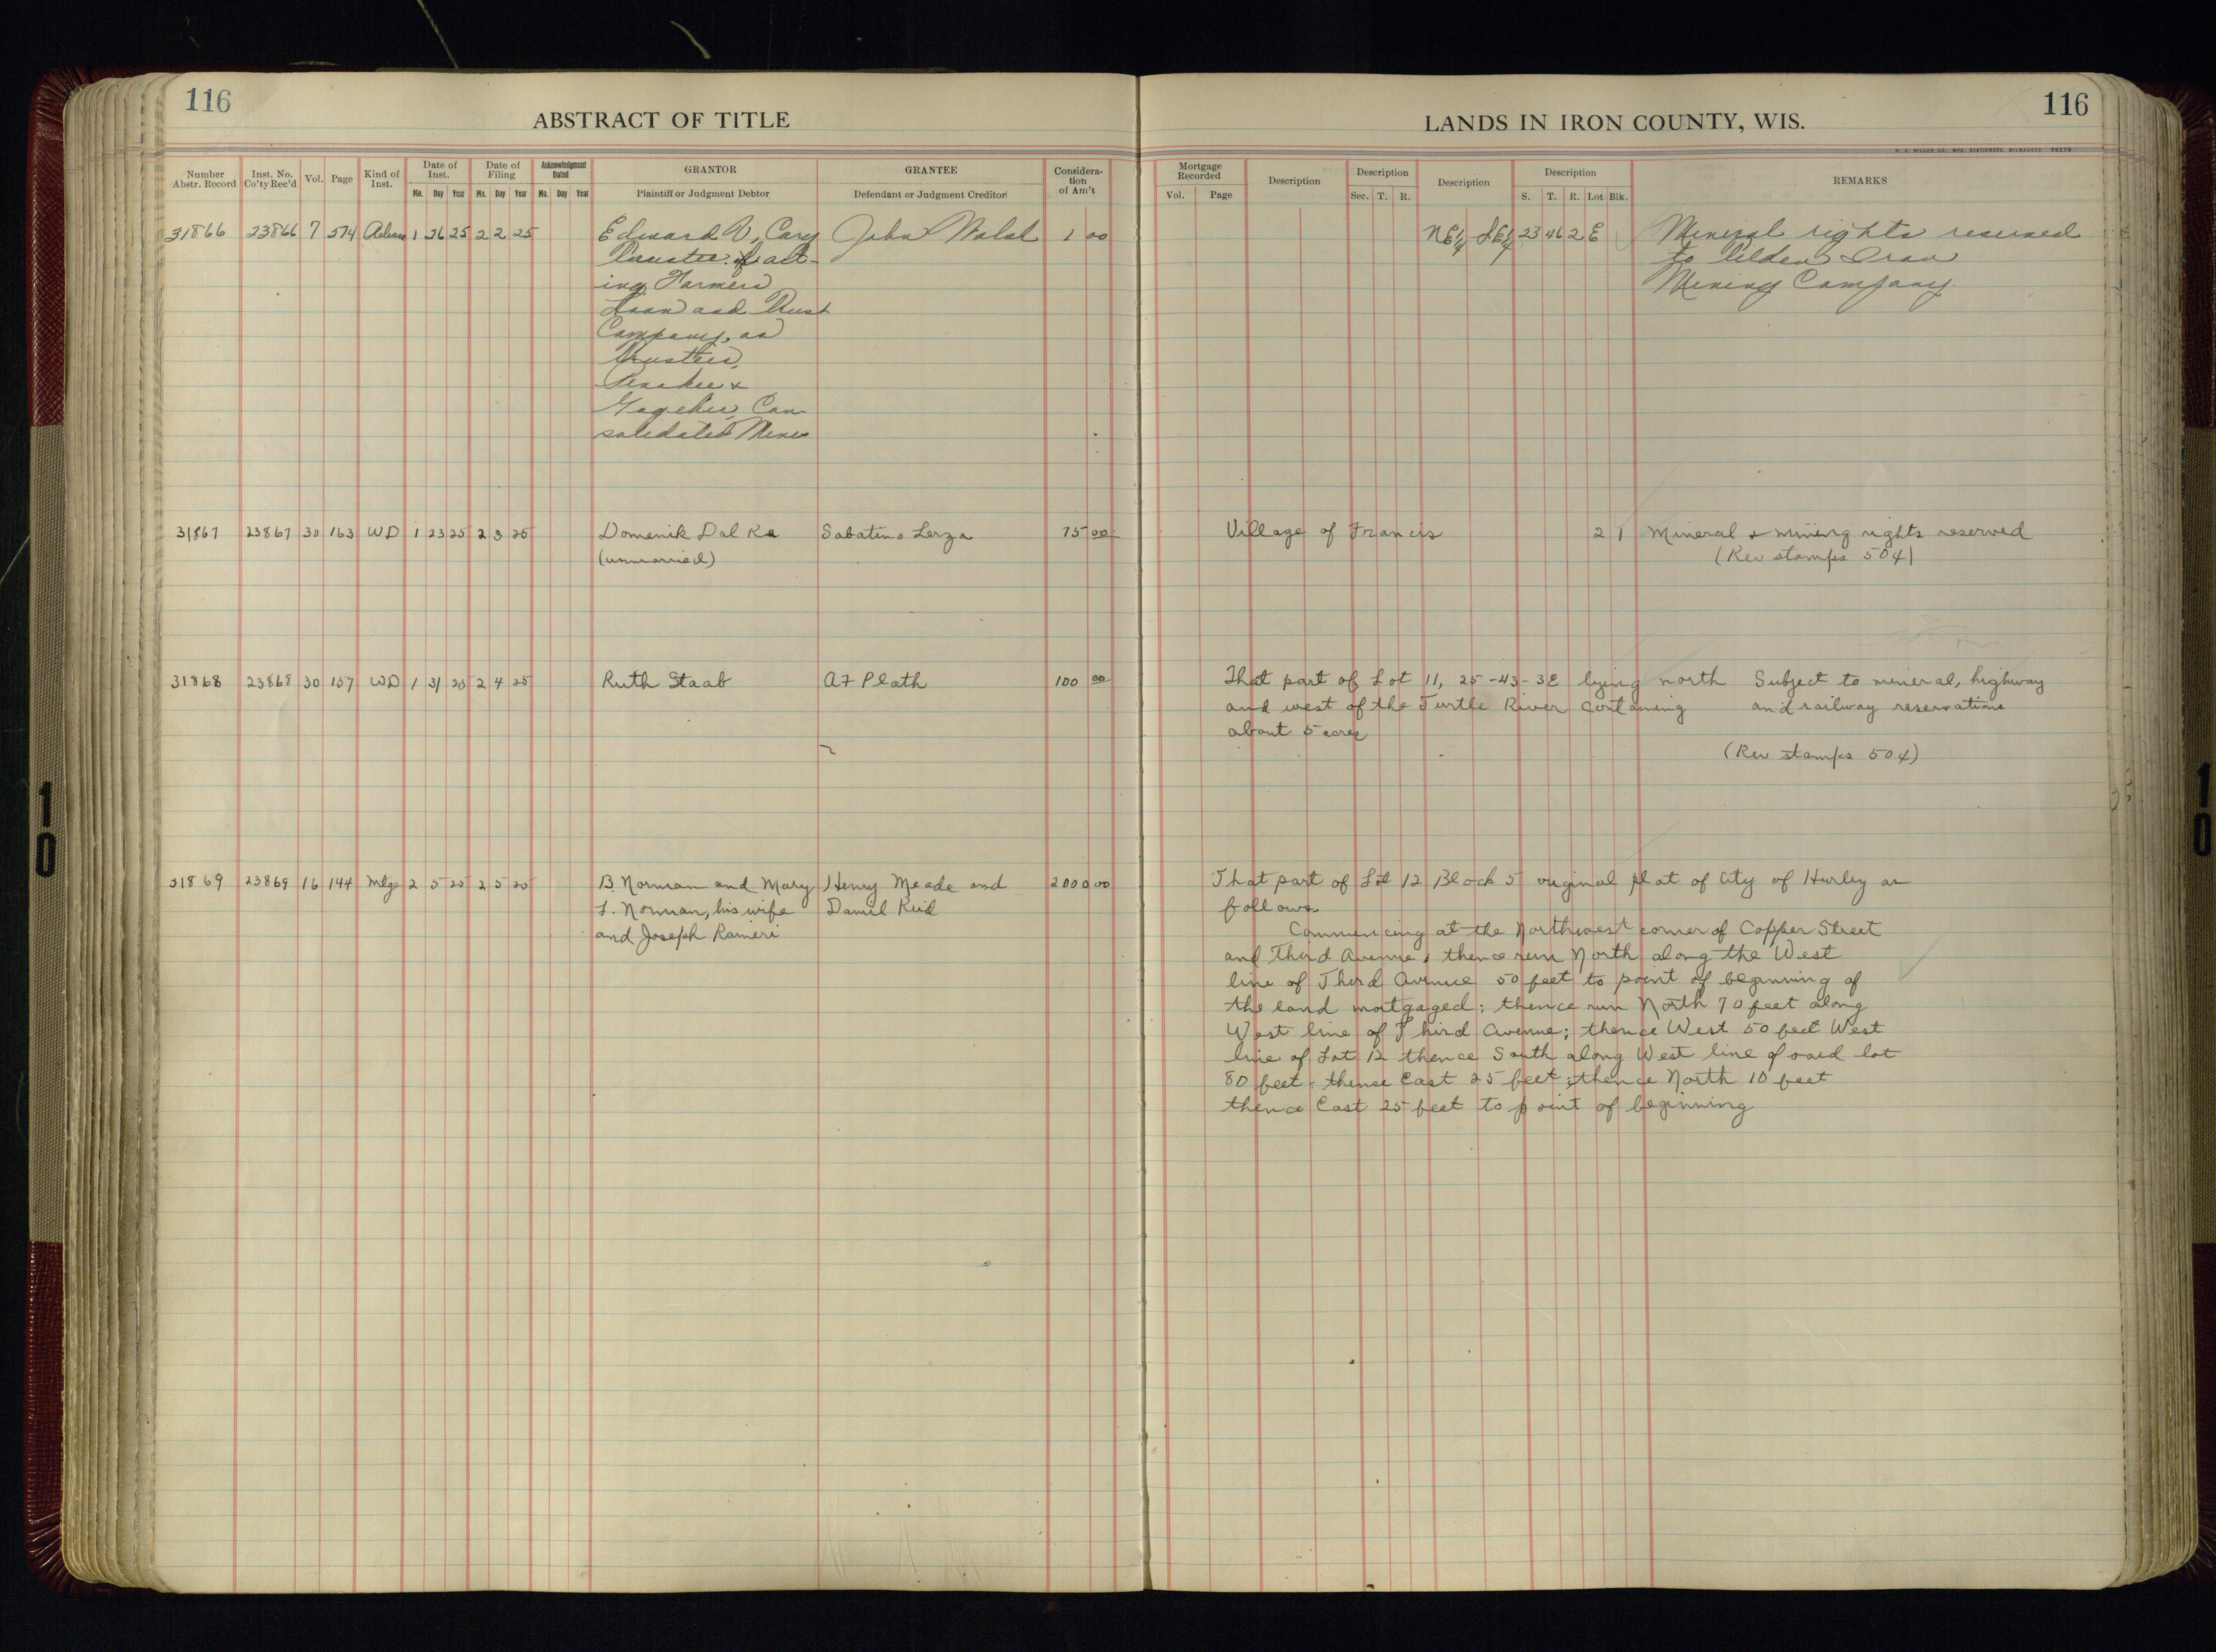 116
ABSTRACT OF TITLE
Number Abstr. Record Inst. No. Co'ty Rec'd Vol. Page Kind of Inst. Date of Inst. Date of Filing Acknowledgment Dated GRANTOR GRANTEE Considera-tion of Am't
Mo. Day Year Mo. Day Year Mo. Day Year Plaintiff or Judgment Debtor Defendant or Judgment Creditor
31866 23866 7 574 1 26 25 2 2 25 Edward V. Cary John Walsh 1 00
Trustee act-
ing Farmers
Loan and Trust
Company, as
Trustee,
Penokee &
Gogebic Con-
solidated Mines
31867 23867 30 163 WD 1 23 25 2 3 25 Domenik Dal Ra Sabatino Lerza 75 00
(unmarried)
31868 23868 30 157 WD 1 31 25 2 4 25 Ruth Staab A F Plath 100 00
31869 23869 16 144 Mtge 2 5 25 2 5 25 B. Norman and Mary Henry Meade and 2000 00
L. Norman, his wife Daniel Reid
and Joseph Raineri
116
LANDS IN IRON COUNTY, WIS.
H. C. MILLER CO., MFG. STATIONERS, MILWAUKEE
Mortgage Recorded Description Description Description Description REMARKS
Vol. Page Sec. T. R. S. T. R. Lot Blk.
NE¼ SE¼ 23 46 2 E Mineral rights reserved
to Tilden Iron
Mining Company.
Village of Francis 2 1 Mineral & mining rights reserved
(Rev stamps 50¢)
That part of Lot 11, 25-43-3E lying north Subject to mineral, highway
and west of the Turtle River containing and railway reservations
about 5 acres
(Rev stamps 50¢)
That part of Lot 12 Block 5 original plat of City of Hurley as
follows
Commencing at the Northwest corner of Copper Street
and Third Avenue, thence run North along the West
line of Third Avenue 50 feet to point of beginning of
the land mortgaged; thence run North 70 feet along
West line of Third Avenue; thence West 50 feet West
line of Lot 12 thence South along West line of said lot
80 feet - thence East 25 feet; thence North 10 feet
thence East 25 feet to point of beginning
10
10